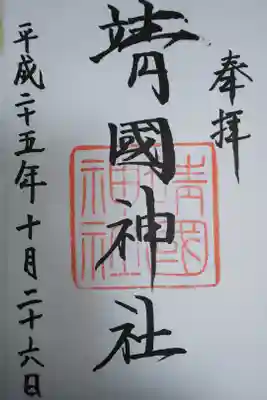 奉拝
靖國神社
靖國神社
平成二十五年十月二十六日